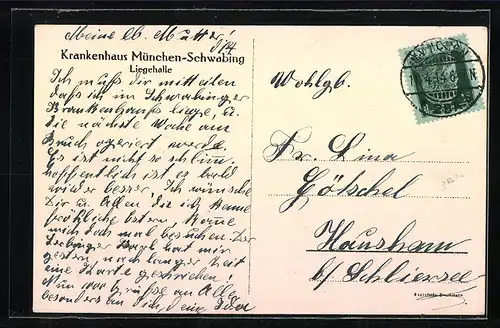 Meine lb. Mutter!
Krankenhaus München-Schwabing
Liegehalle
Ich muß dir mitteilen
daß ich im Schwabinger
Krankenhause liege, u.
die nächste Woche am
Bruch operiert werde.
Es ist nicht so schlimm.
hoffentlich ist es bald
wieder besser, Ich wünsche
Dir u. Allen die ich kenne
fröhliche Ostern,
mich doch mal besuchen. Der
hat mir
gestern nach langer Zeit
eine Karte geschrieben!
Nun 1000 Grüße an Alle
besonders an dich, deine
Wohlgb.
Fr. Lina
Götschel
Hausham
b/ Schliersee